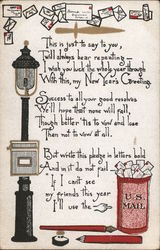 This is just to say to you,
'Twill always bear repeating—
I wish you luck the whole year through
With this, my New Year's Greeting.
Success to all your good resolves
We'll hope that none will fall
Though better 'tis to vow and lose
Than not to vow at all.
But write this pledge in letters bold
And in it do not fail
If I can't see
my friends this year
I'll use the
U.S.
MAIL